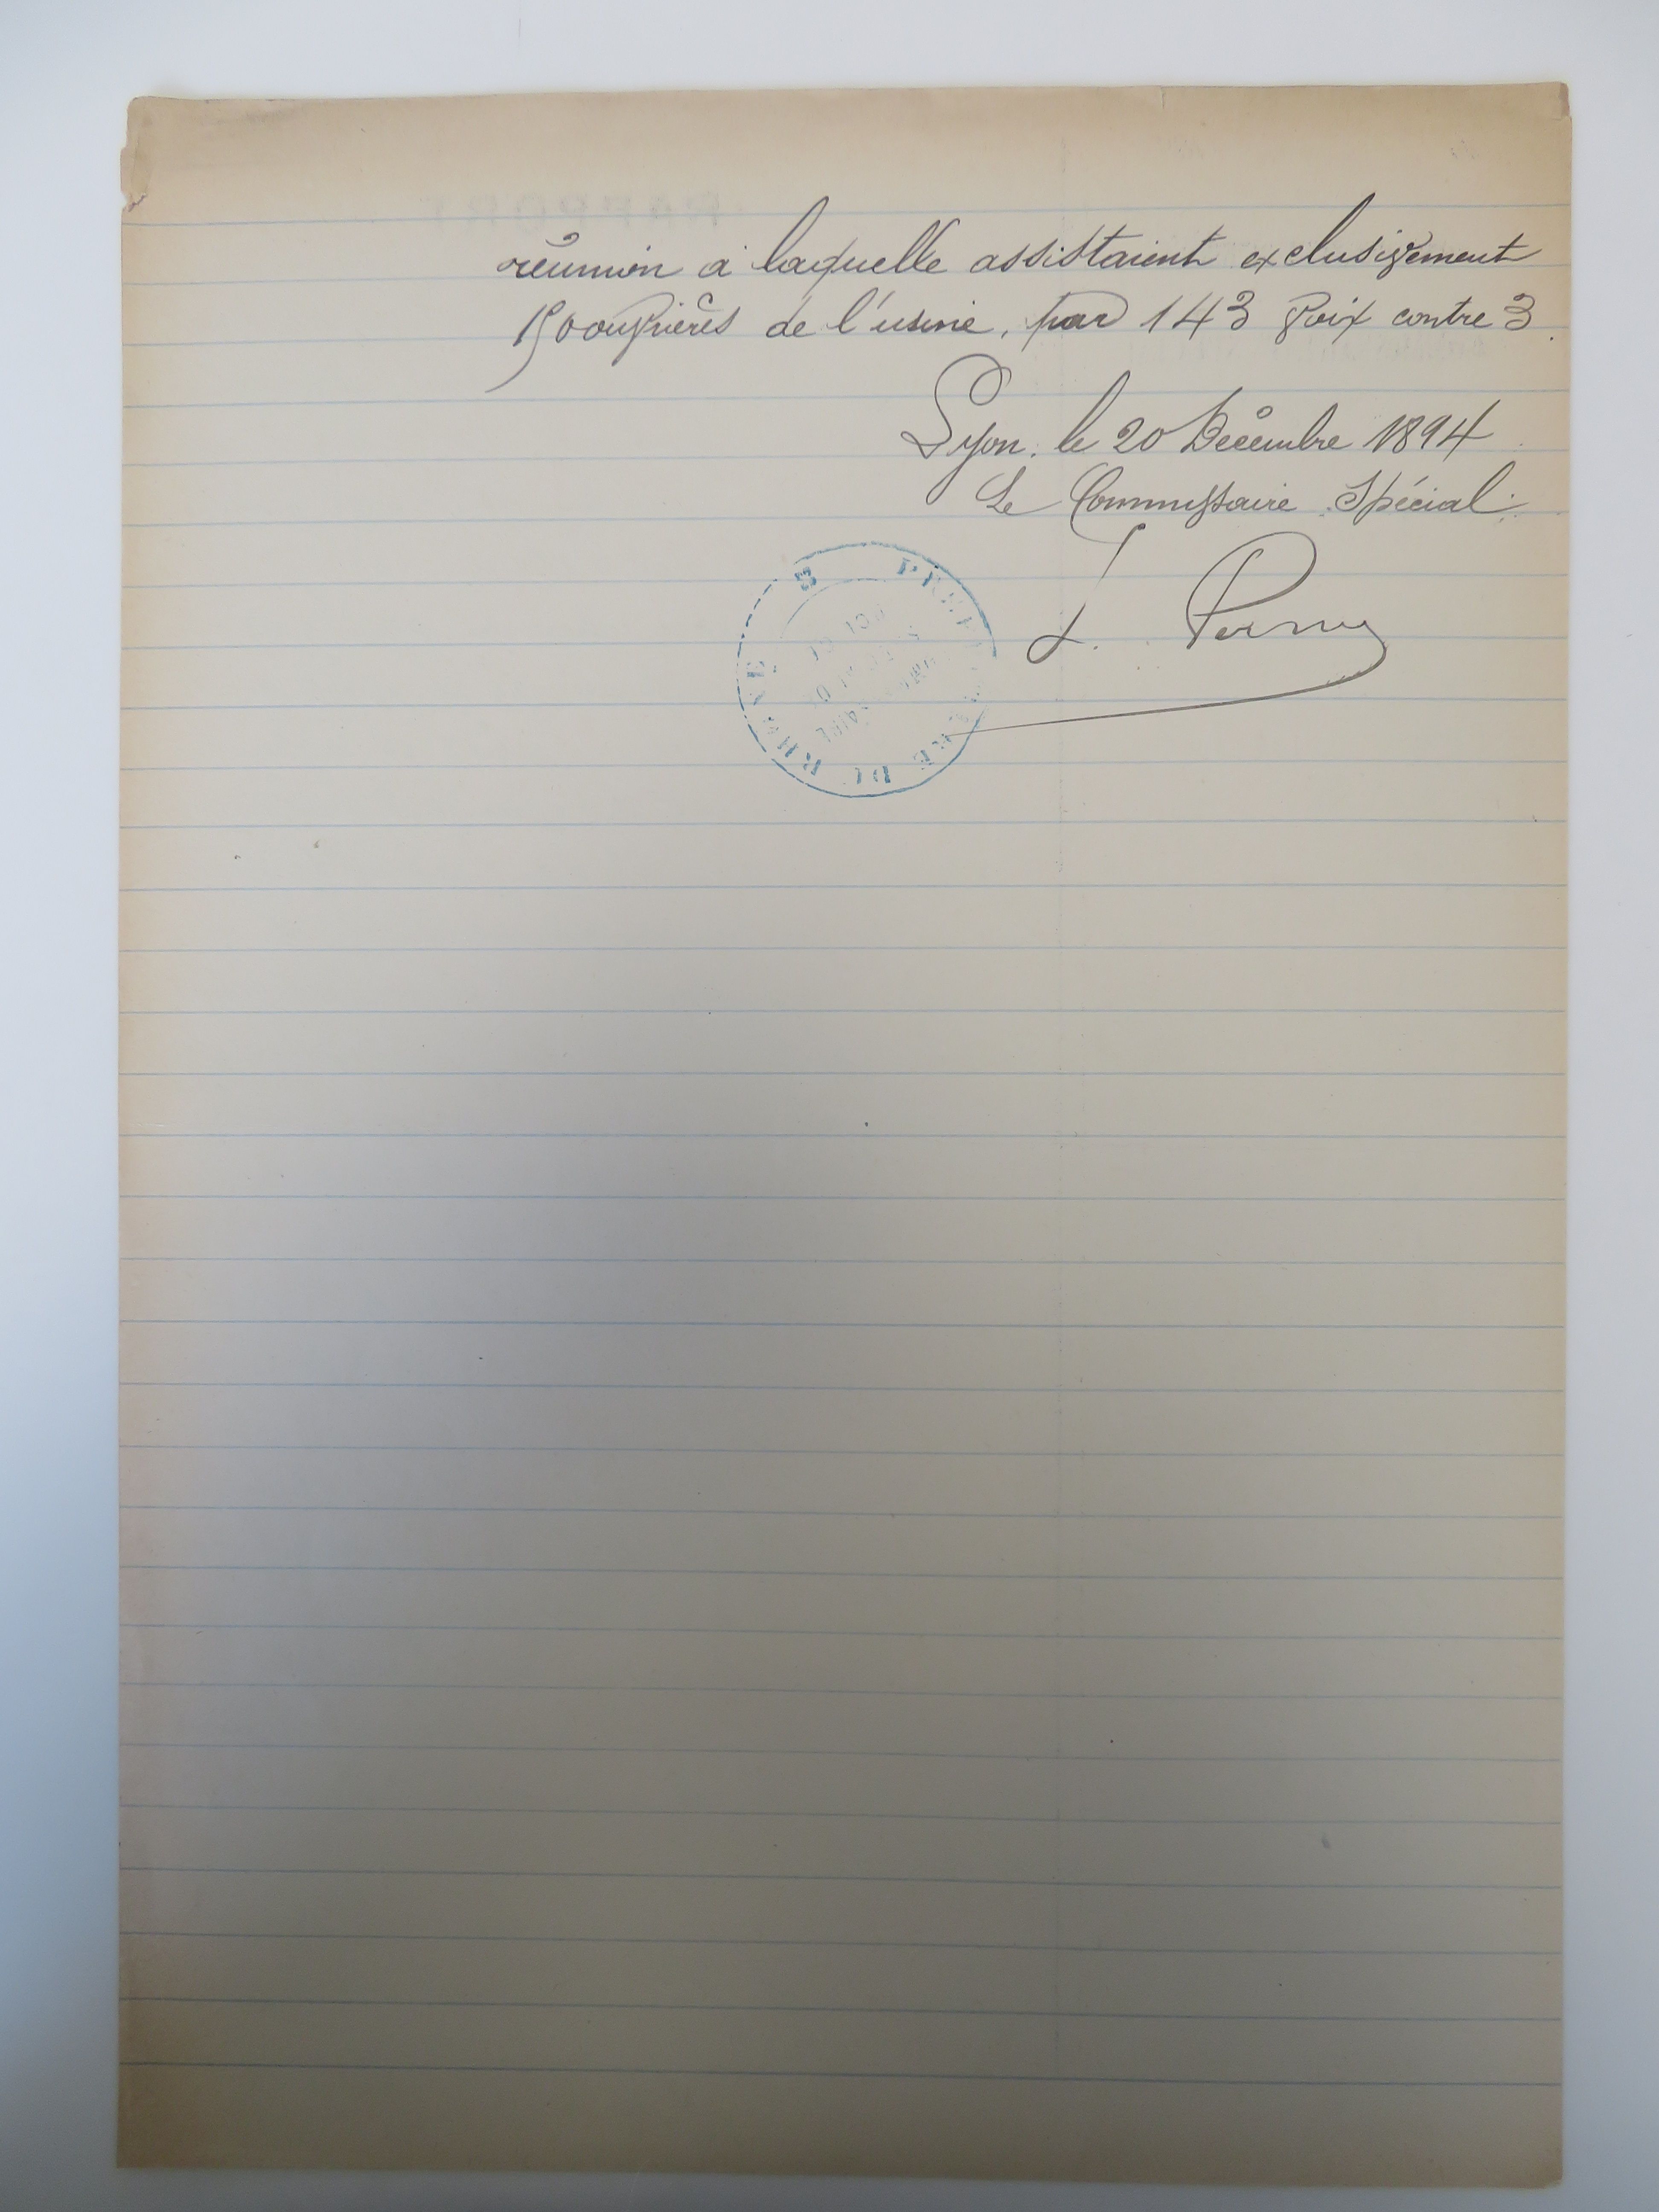 réunion à laquelle assistaient exclusivement
150 ouvrières de l'usine, par 143 voix contre 3.
Lyon, le 20 Décembre 1894
Le Commissaire Spécial:
PREFECTURE DU RHONE